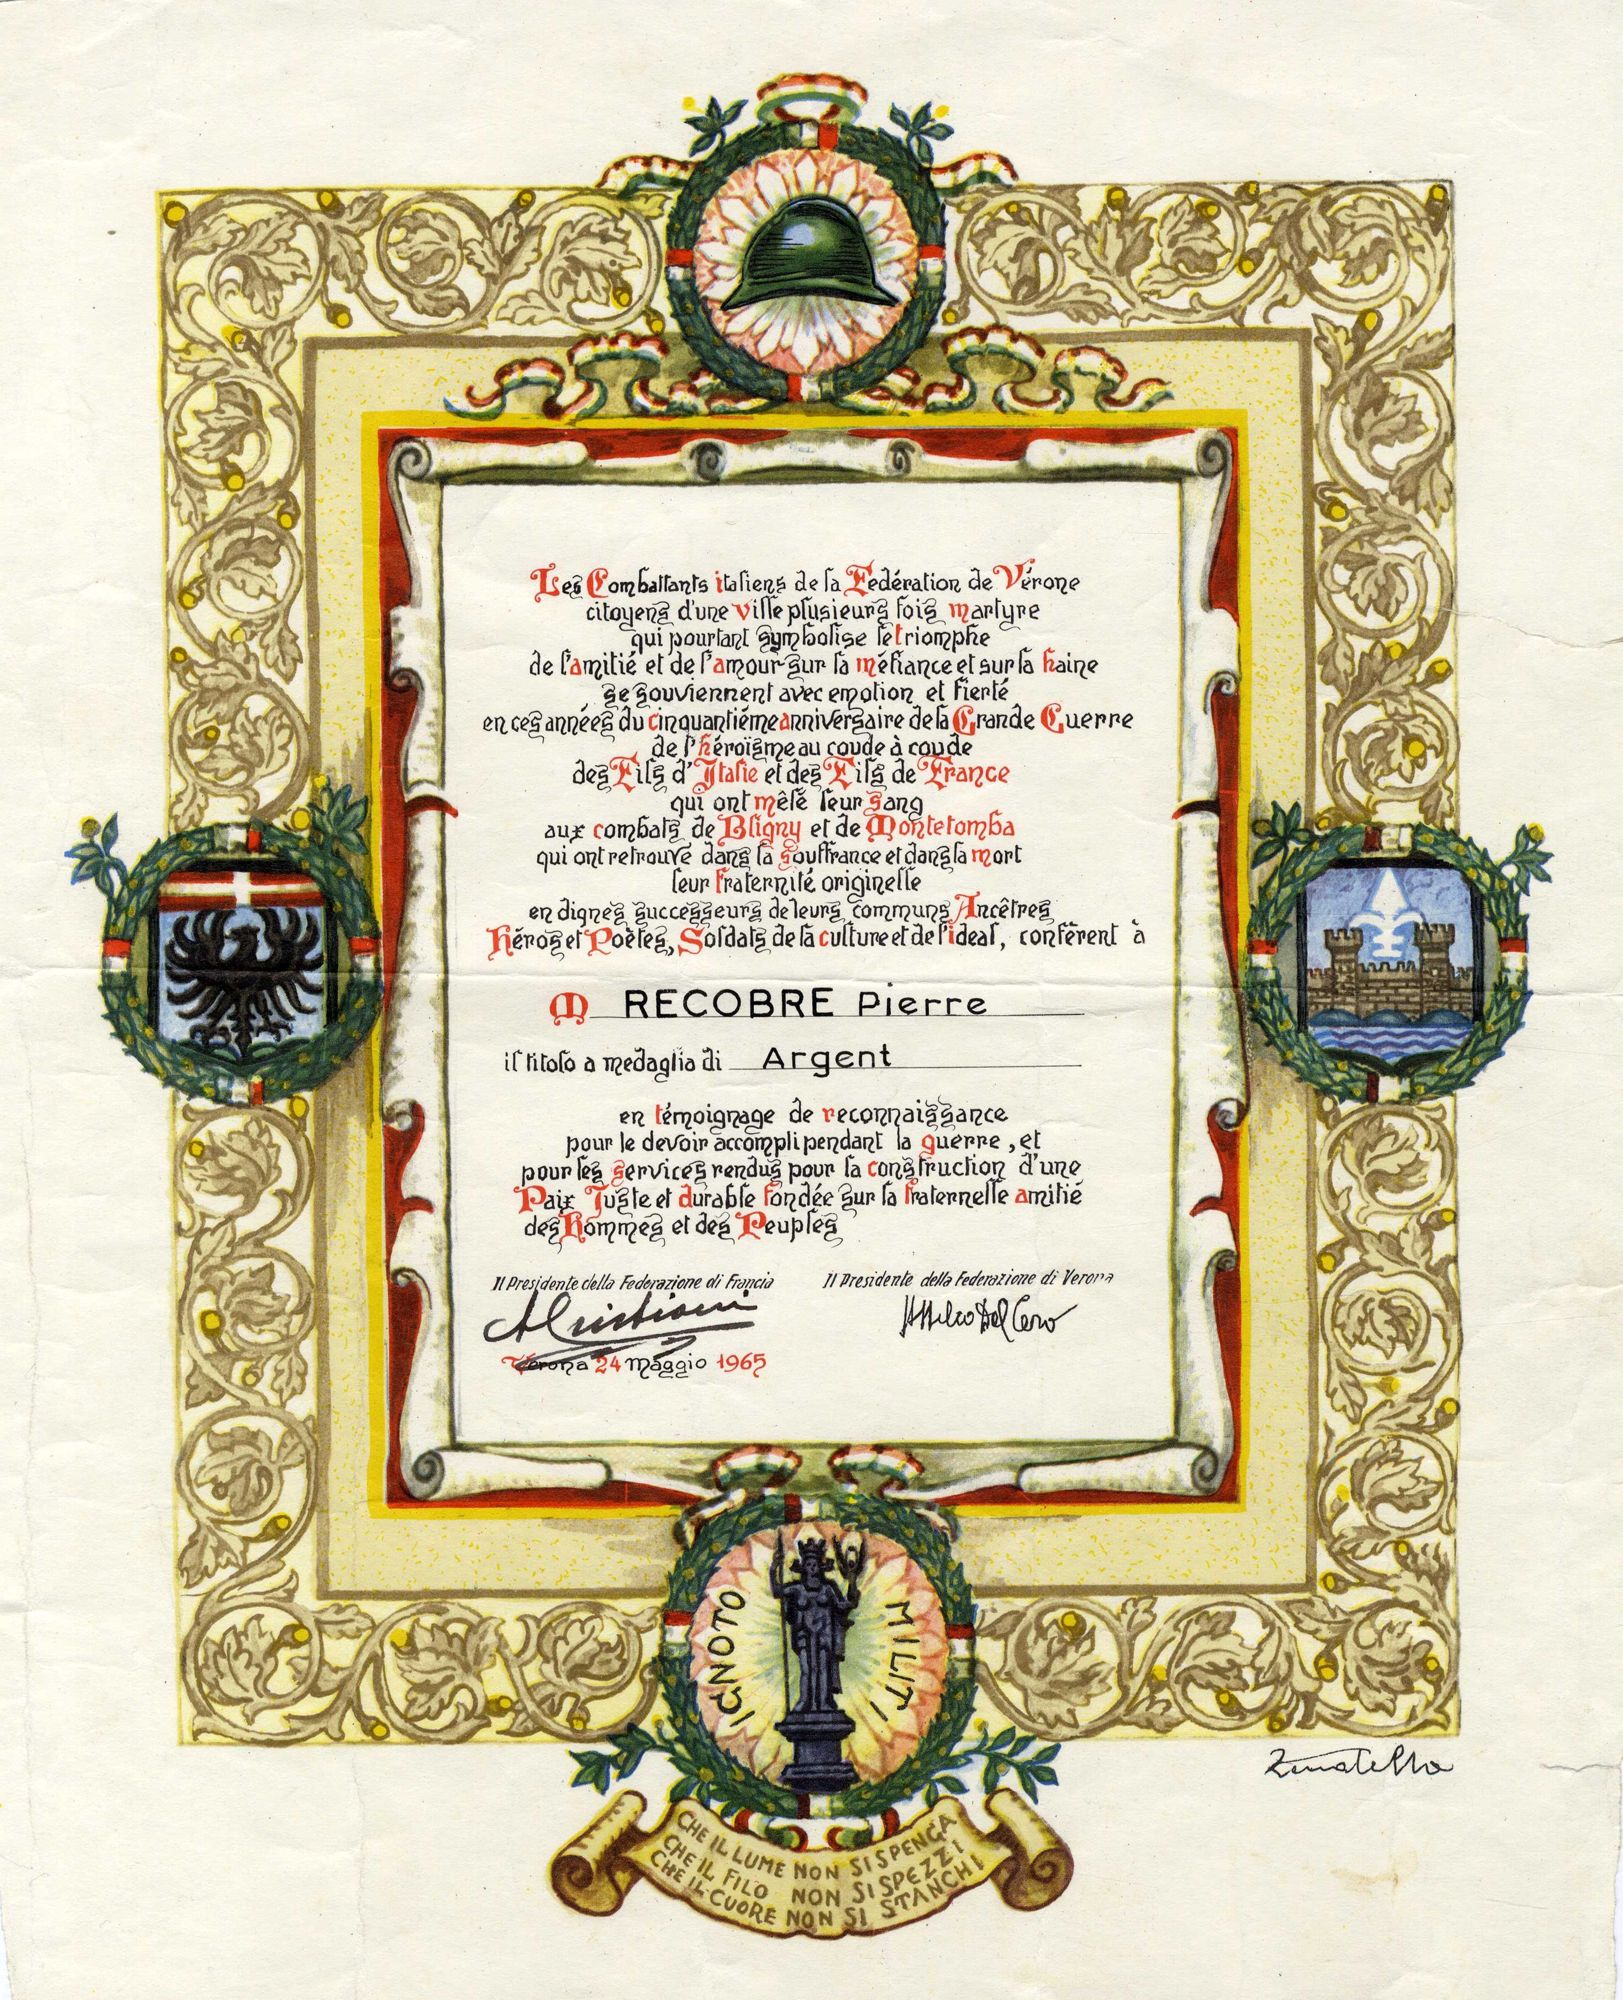 Les Combattants italiens de la Fedération de Vérone
citoyens d'une ville plusieurs fois martyre
qui pourtant symbolise le triomphe
de l'amitié et de l'amour sur la méfiance et sur la haine
se souviennent avec emotion et fierté
en ces années du cinquantiéme anniversaire de la Grande Guerre
de l'héroïsme au coude à coude
des Fils d'Italie et des Fils de France
qui ont mêlé leur sang
aux combats de Bligny et de Montetomba
qui ont retrouvé dans la souffrance et dans la mort
leur fraternité originelle
en dignes successeurs de leurs communs Ancêtres
Héros et Poètes, Soldats de la culture et de l'ideal, confèrent à
M RECOBRE Pierre
il titolo a medaglia di Argent
en témoignage de reconnaissance
pour le devoir accompli pendant la guerre, et
pour les services rendus pour la construction d'une
Paix Juste et durable fondée sur la fraternelle amitié
des Hommes et des Peuples
Il Presidente della Federazione di Francia
Il Presidente della Federazione di Verona
A Cristiani
Attilio Dal Cero
Verona 24 maggio 1965
IGNOTO
MILITI
CHE IL LUME NON SI SPENGA
CHE IL FILO NON SI SPEZZI
CHE IL CUORE NON SI STANCHI